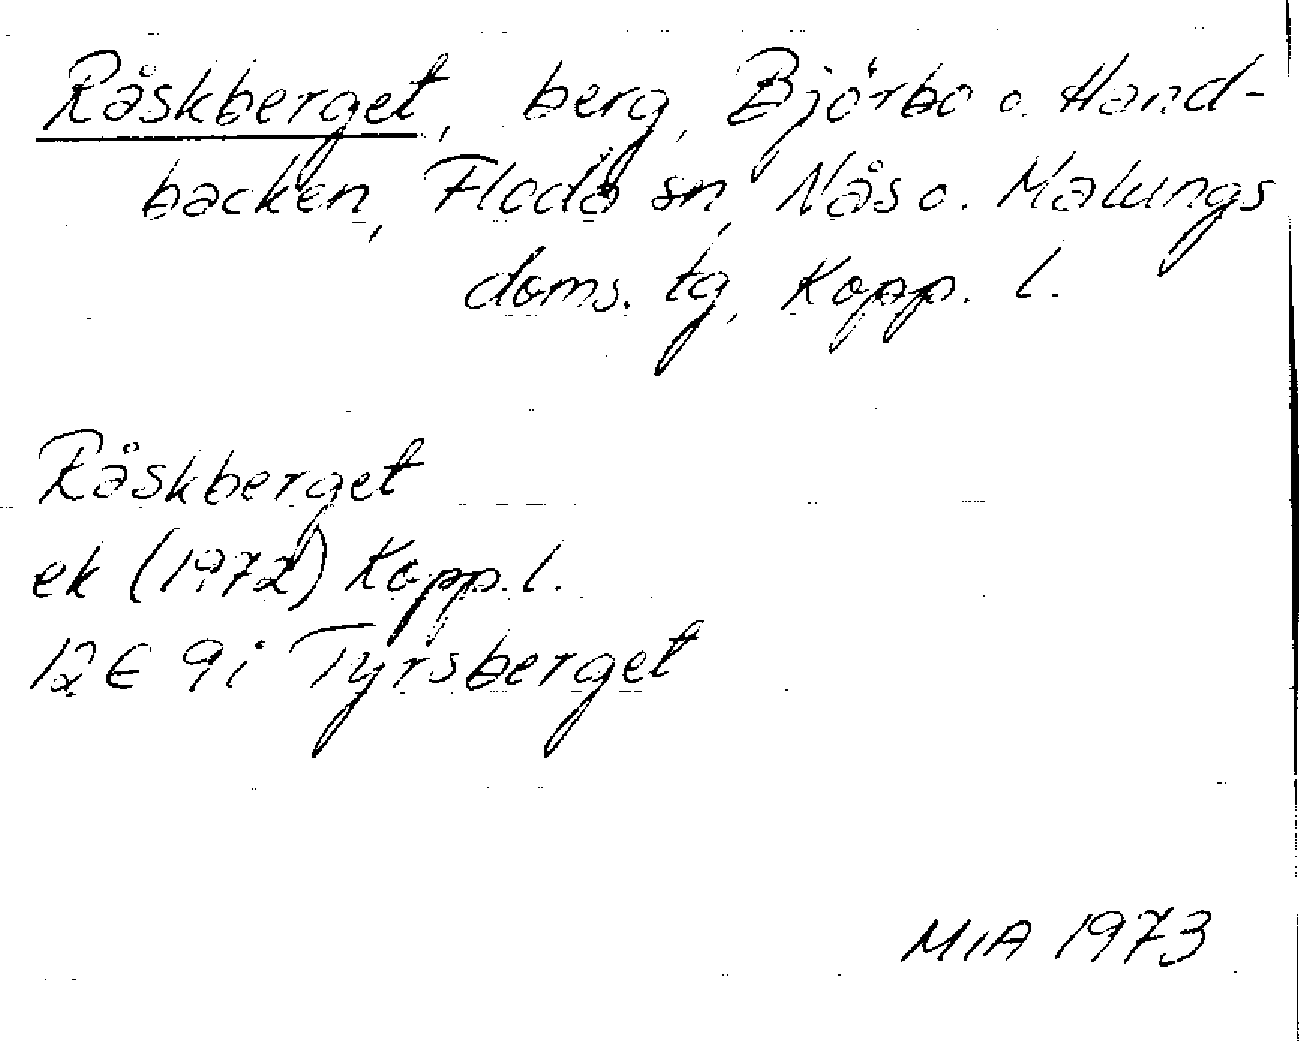 Råskberget, berg, Björbo o. Hand-
backen, Floda sn, Nås o. Malungs
doms. tg, Kopp. l.
Råskberget
ek (1972) Kopp. l.
12E 9i Tyrsberget
MIA 1973